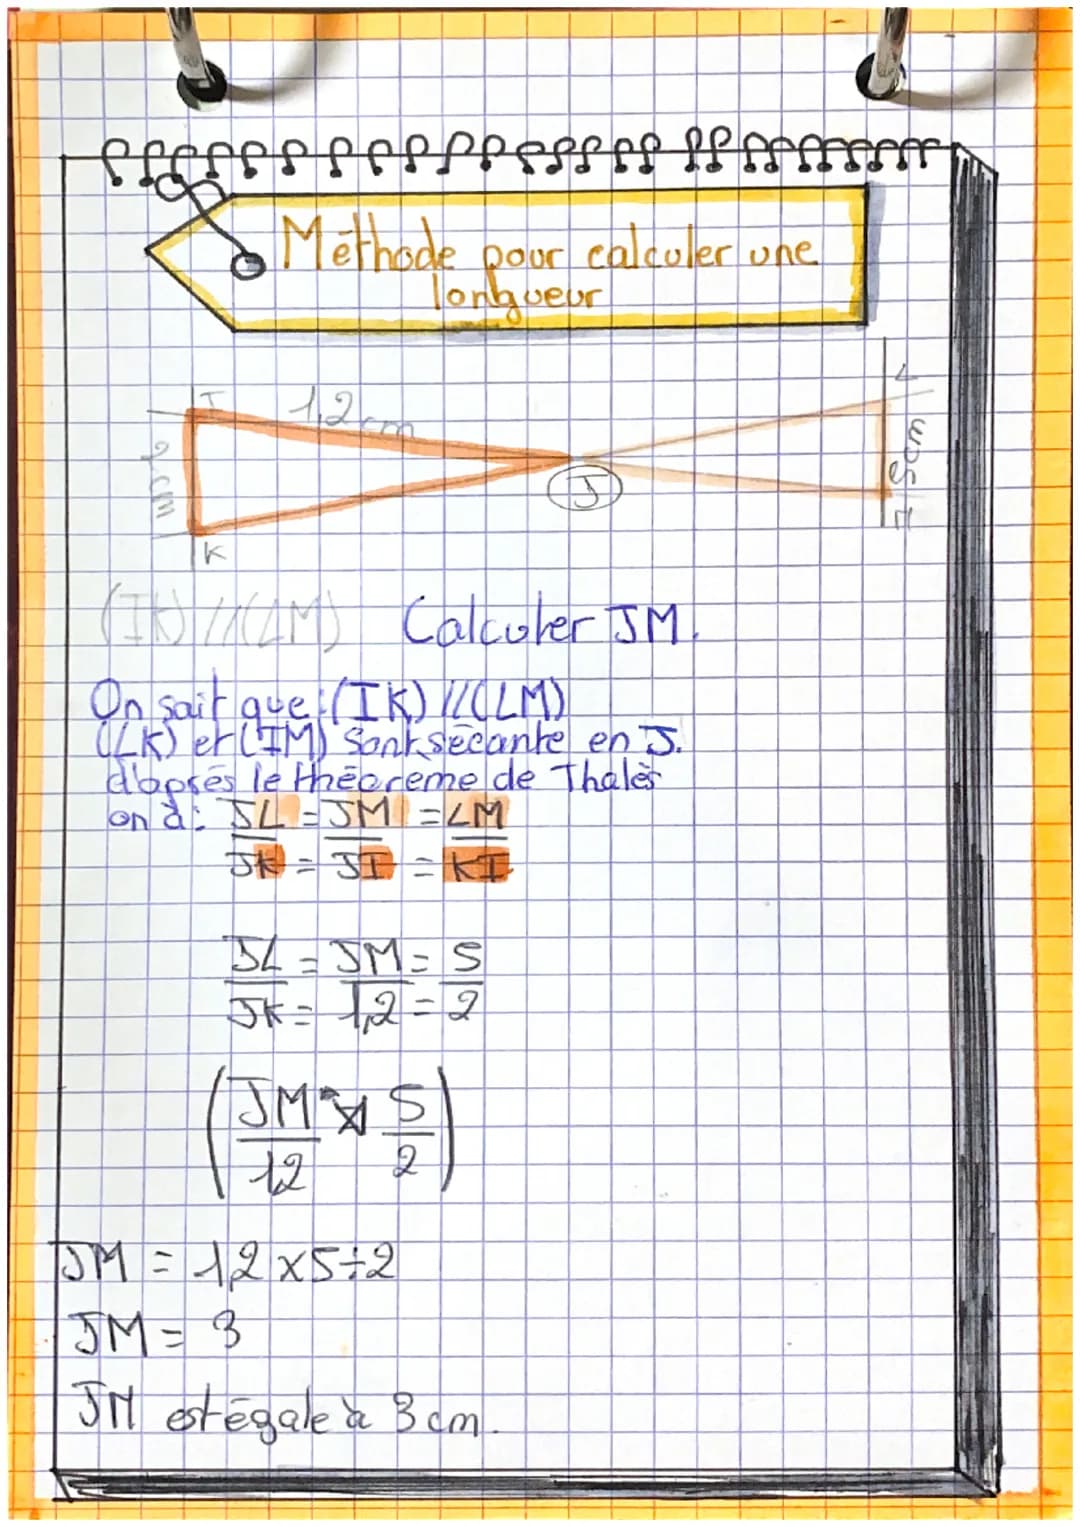 Méthode pour calculer une
longueur
I
1,2 cm
L
2 cm
5cm
J
K
M
(IK)//(LM) Calculer JM.
On sait que : (IK)//(LM)
(LK) et (IM) sont sécante en J.
d'après le théoreme de Thalès
on à : JL = JM = LM
JK = JI = KI
JL = JM = 5
JK = 1,2 = 2
(JM 5)
1,2 2
JM = 1,2 x 5 ÷ 2
JM = 3
JM est égale à 3 cm.